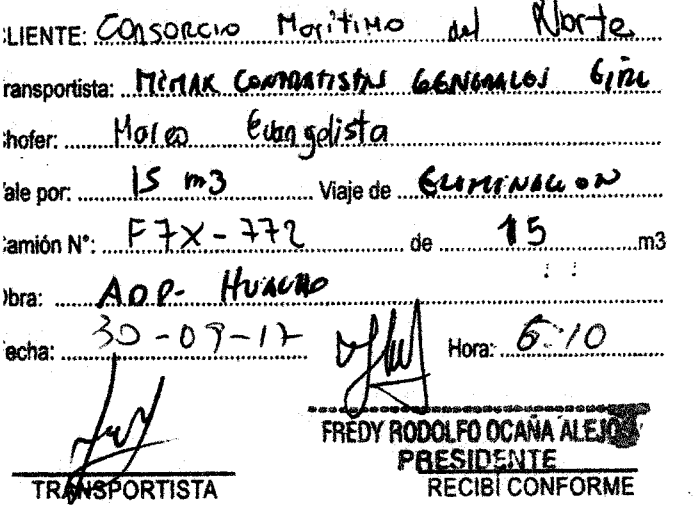 CLIENTE: Consorcio Maritimo del Norte
ransportista: MIMAK CONTRATISTAS GENERALES EIRL
Chofer: Marco Evangelista
ale por: 15 m3 Viaje de ELIMINACION
Camión N°: F7X-772 de 15 m3
Obra: ADP- HUACHO
echa: 30-09-17 Hora: 6:10
FREDY RODOLFO OCAÑA ALEJO
PRESIDENTE
TRANSPORTISTA RECIBÍ CONFORME